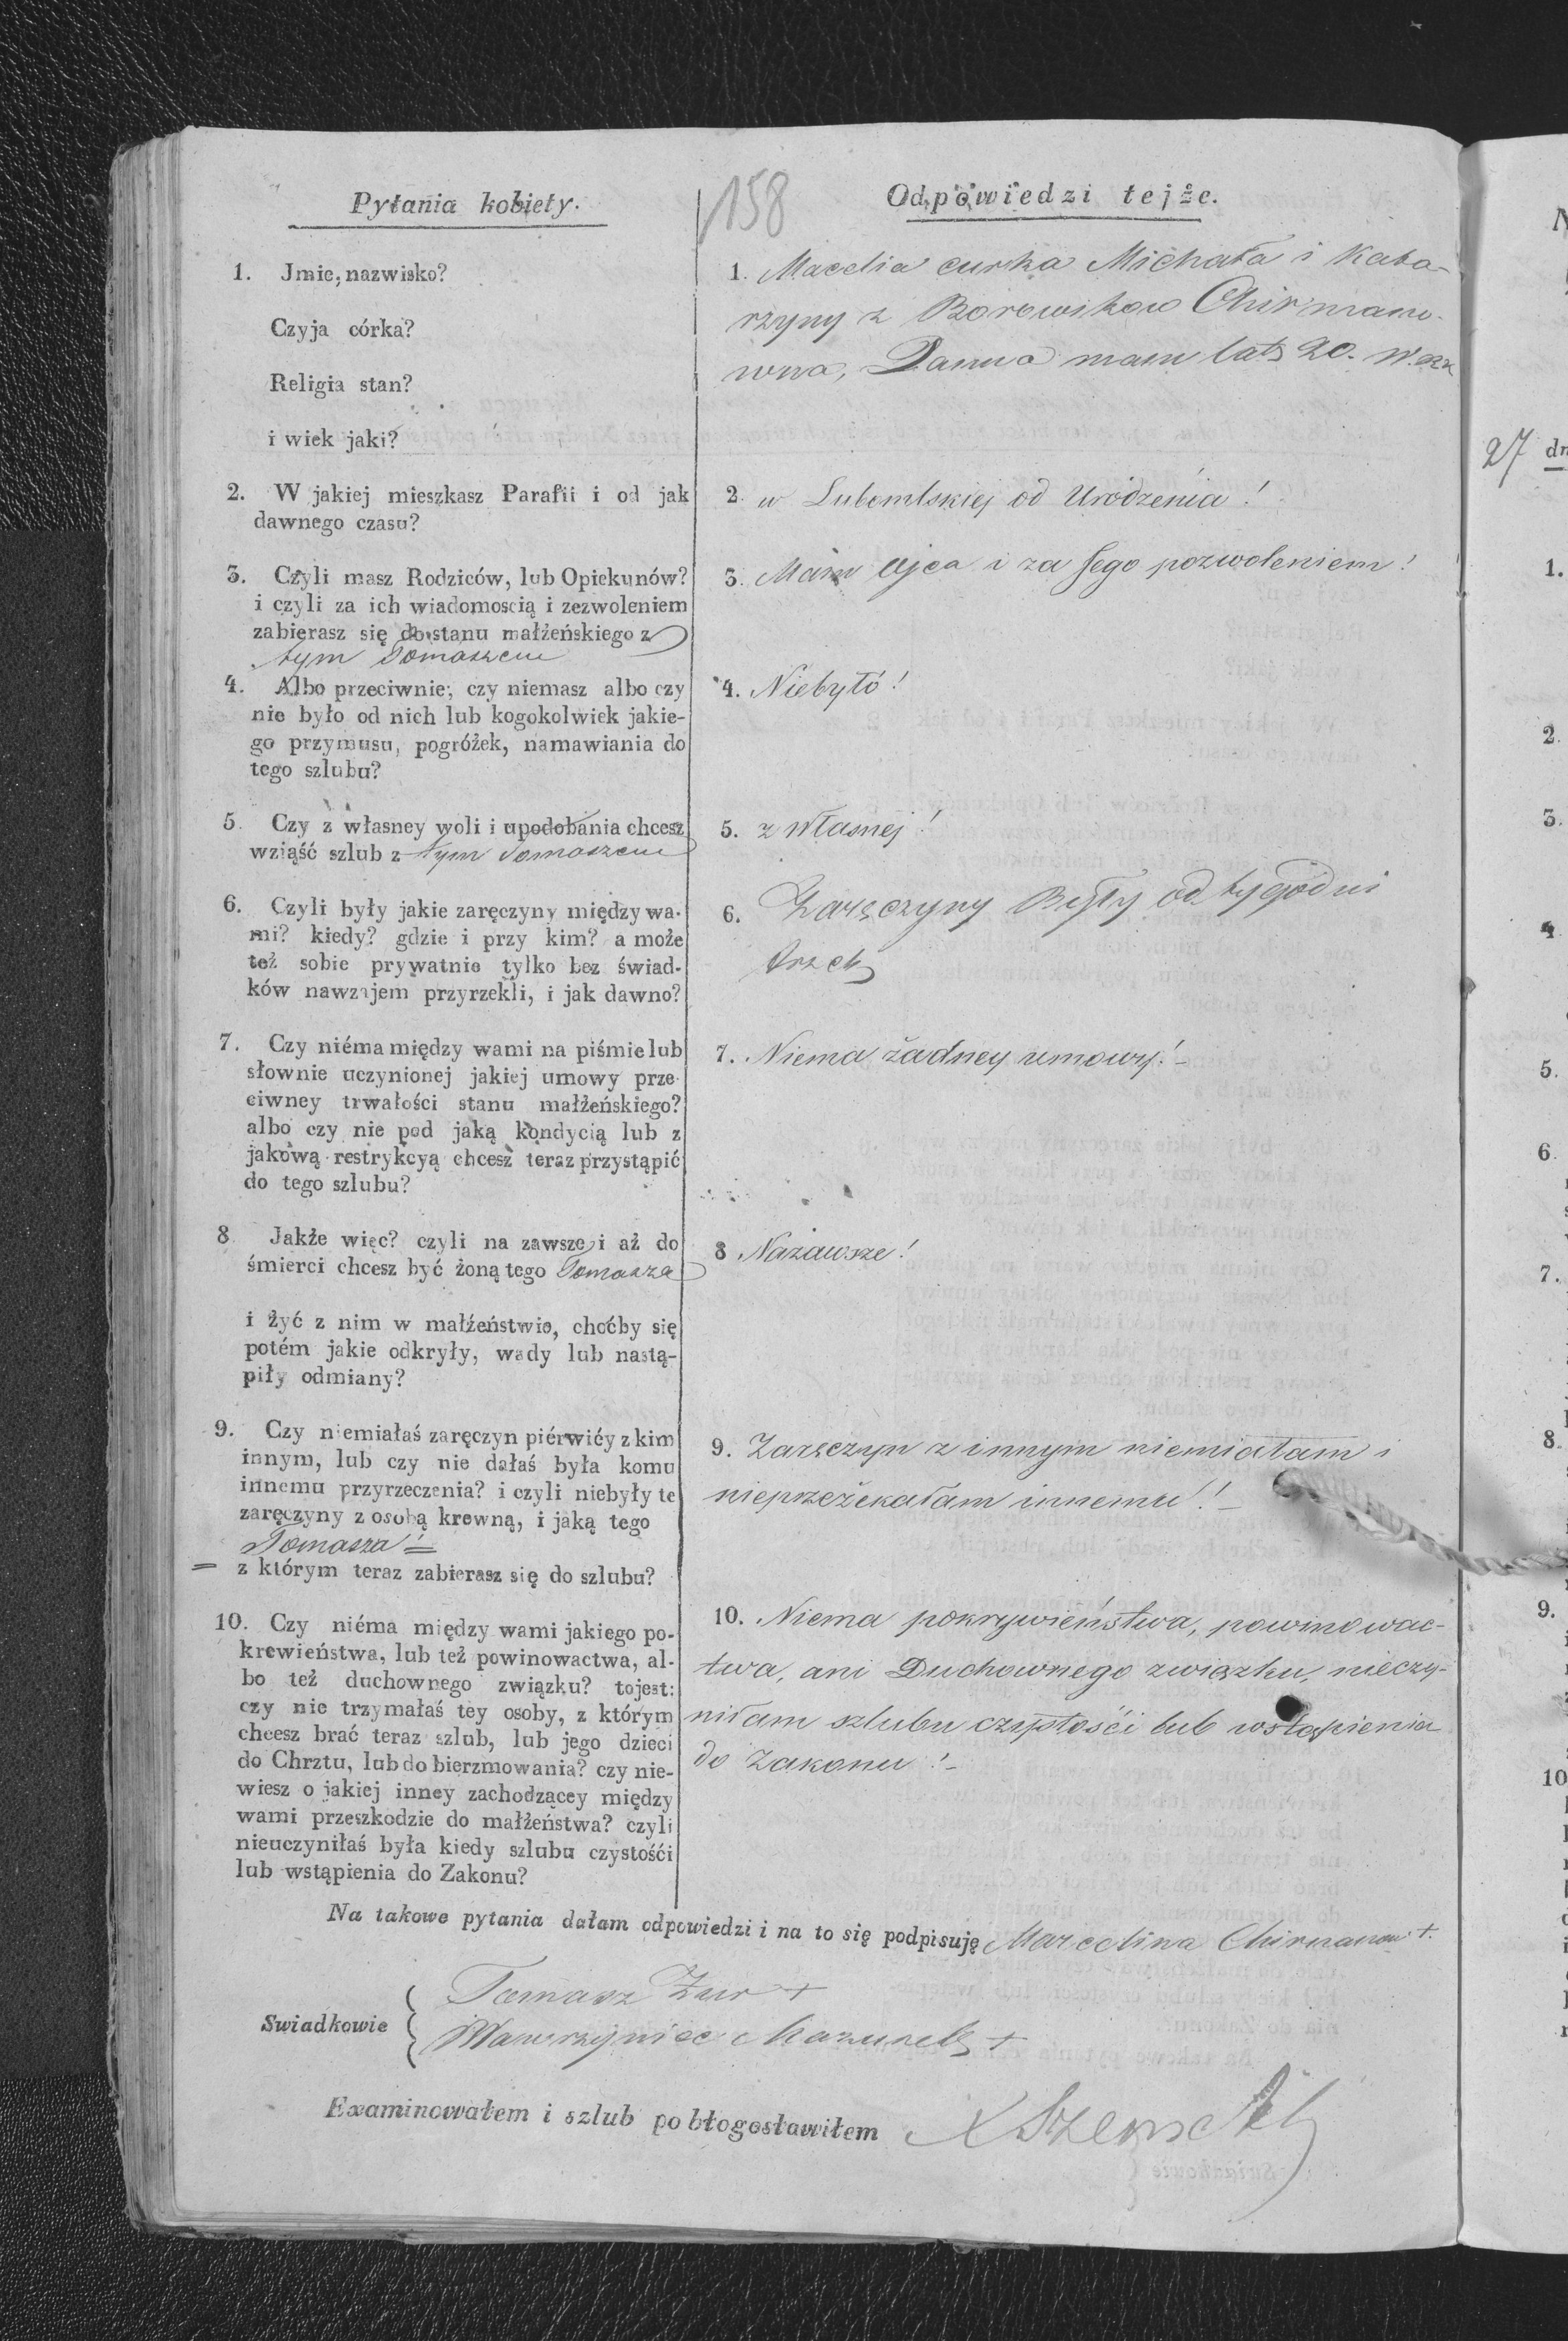 158
Pytania kobiety.
1. Jmie, nazwisko?
Czyja córka?
Religia stan?
i wiek jaki?
2. W jakiej mieszkasz Parafii i od jak
dawnego czasu?
3. Czyli masz Rodziców, lub Opiekunów?
i czyli za ich wiadomoscią i zezwoleniem
zabierasz się do stanu małżeńskiego z
tym Tomaszem
4. Albo przeciwnie; czy niemasz albo czy
nie było od nich lub kogokolwiek jakie-
go przymusu, pogróżek, namawiania do
tego szlubu?
5. Czy z własney woli i upodobania chcesz
wziąść szlub z tym Tomaszem
6. Czyli były jakie zaręczyny między wa-
mi? kiedy? gdzie i przy kim? a może
też sobie prywatnie tylko bez świad-
ków nawzajem przyrzekli, i jak dawno?
7. Czy niéma między wami na piśmie lub
słownie uczynionej jakiej umowy prze-
ciwney trwałości stanu małżeńskiego?
albo czy nie pod jaką kondycią lub z
jakową restrykcyą chcesz teraz przystąpić
do tego szlubu?
8 Jakże więc? czyli na zawsze i aż do
śmierci chcesz być żoną tego Tomasza
i żyć z nim w małżeństwie, choćby się
potém jakie odkryły, wady lub nastą-
piły odmiany?
9. Czy niemiałaś zaręczyn piérwiéy z kim
innym, lub czy nie dałaś była komu
innemu przyrzeczenia? i czyli niebyły te
zaręczyny z osobą krewną, i jaką tego
Tomasza! =
= z którym teraz zabierasz się do szlubu?
10. Czy niéma między wami jakiego po-
krewieństwa, lub też powinowactwa, al-
bo też duchownego związku? tojest:
czy nie trzymałaś tey osoby, z którym
chcesz brać teraz szlub, lub jego dzieci
do Chrztu, lub do bierzmowania? czy nie-
wiesz o jakiej inney zachodzącey między
wami przeszkodzie do małżeństwa? czyli
nieuczyniłaś była kiedy szlubu czystośći
lub wstąpienia do Zakonu?
Odpowiedzi tejże.
1. Macelia curka Michała i Kata-
rzyny z Borowikow Chirmano-
wna, Panna mam lat 20.
2. w Lubomlskiej od Urodzenia!
3. Mam Ojca i za Jego pozwoleniem!
4. Niebyło!
5. z własnej!
6. Zaręczyny Były od tygodni
trzech
7. Niema żadney umowy! -
8 Nazawsze!
9. Zaręczyn z innym niemiałam i
nieprzeżekałam innemu! -
10. Niema pokrywieństwa, powinowac-
twa, ani Duchownego związku, nieczy-
niłam szlubu czystośći lub wstąpienia
do Zakonu! -
Na takowe pytania dałam odpowiedzi i na to się podpisuję Marcelina Chirmanow +.
Swiadkowie
Tomasz Zur +
Wawrzyniec Mazurek +
Examinowałem i szlub pobłogosławiłem
27 dn
1.
2.
3.
4
5.
6.
7.
8.
9.
10